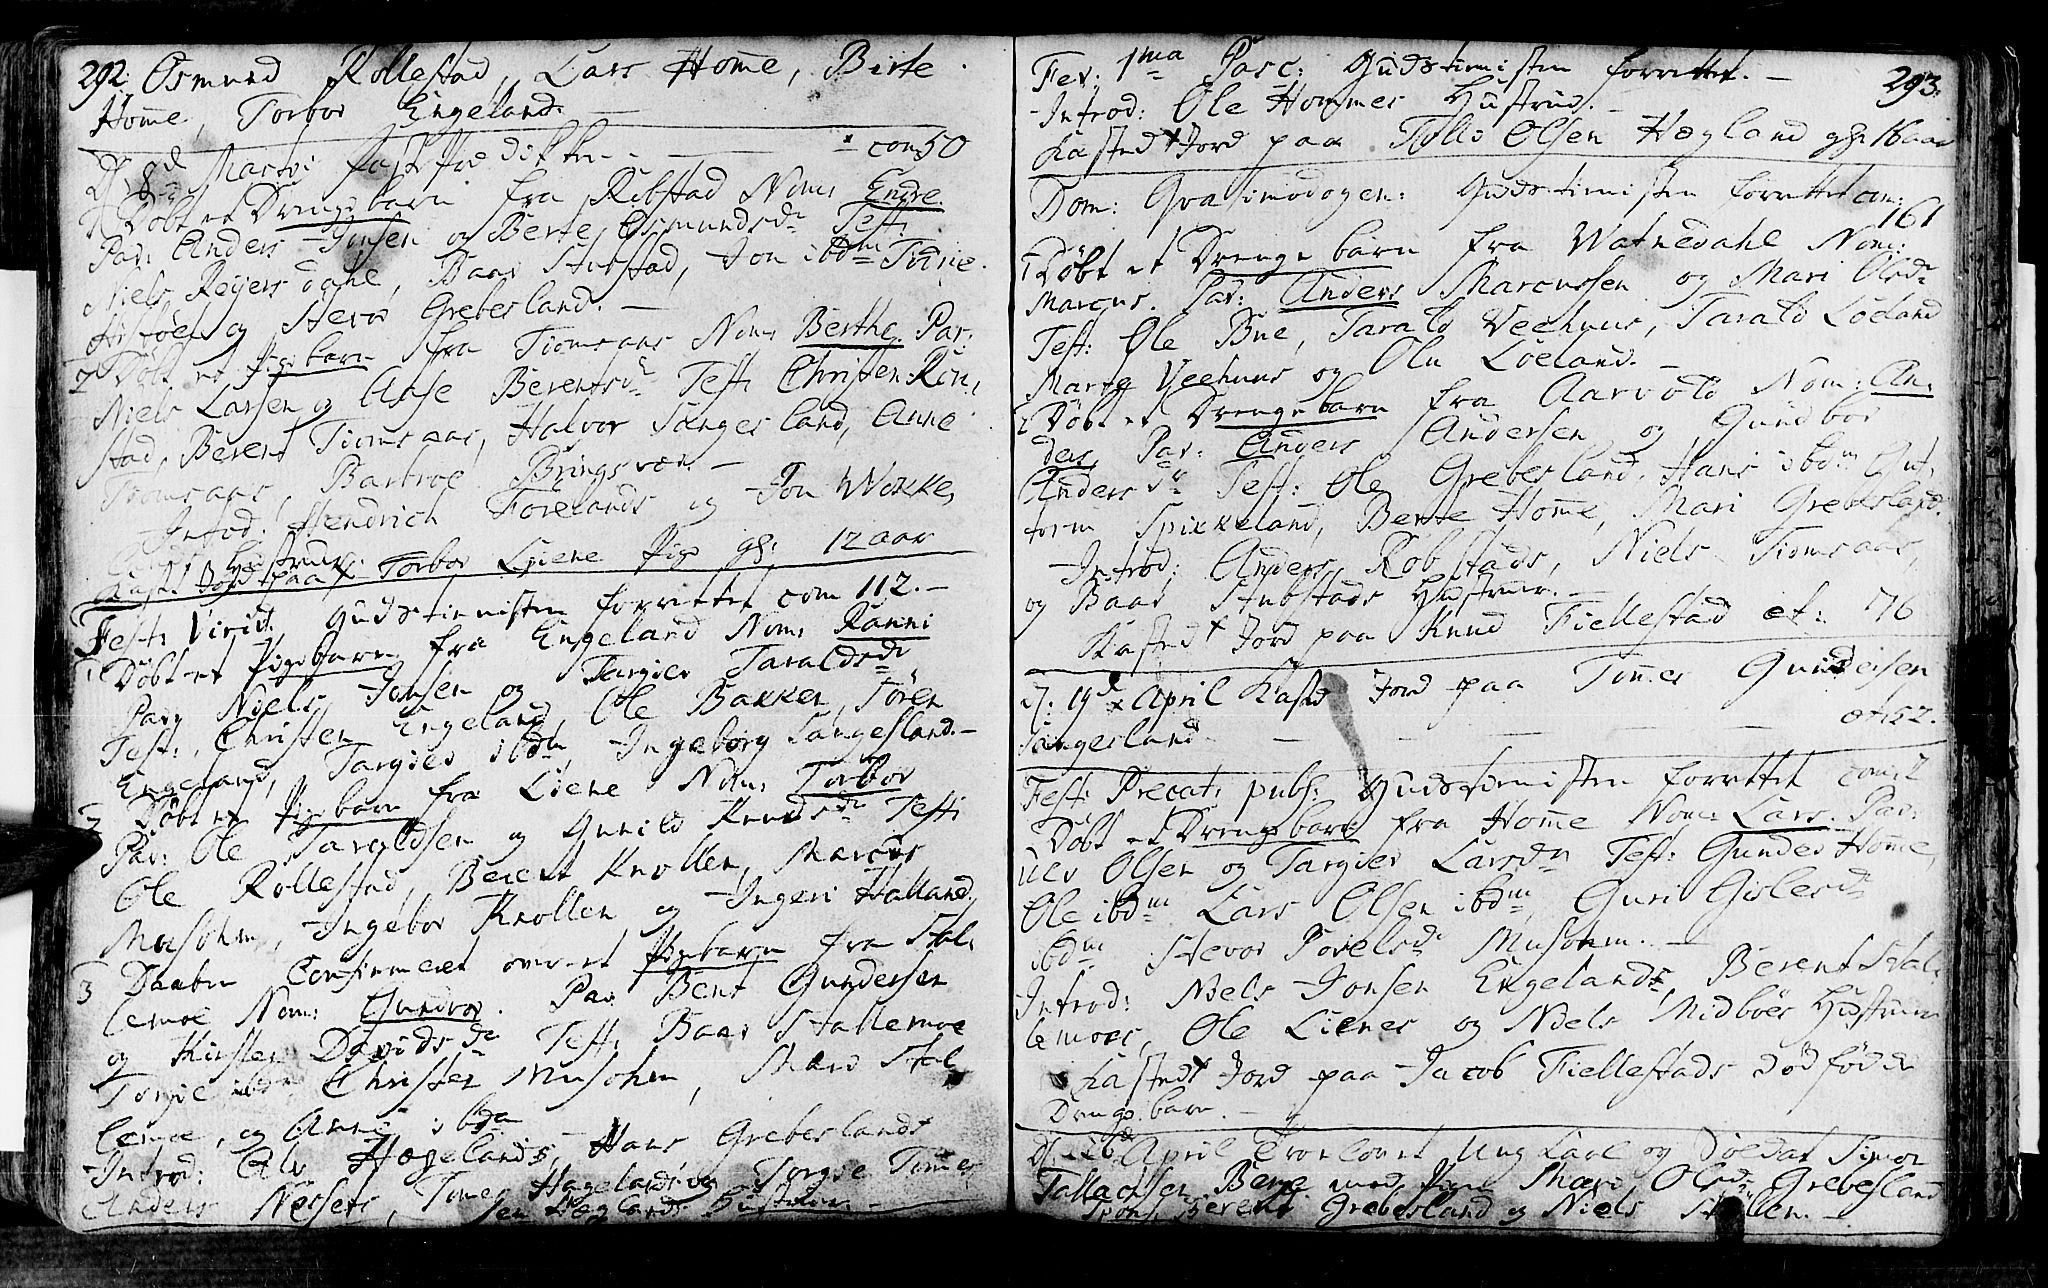 292. Osmund Rollestad, Lars Home, Birte
Home, Torbor Engeland.
D. 18d Martii fastprædiken - - - com 50
1 Døbt et Drengebarn fra Robstad Nom: Endre.
Par: Anders Jonsen og Berte Osmundsdr Test:
Niels Reiersdahl, Baar Stubstad, Jon ibdm Tinne
og Stevor Grebesland. -
2 Døbt et Pigebarn fra Tiomsaas Nom: Berthe. Par:
Niels Larsen og Aase Berentsdr Test: Christen Rön-
stad, Berent Tiomsaas, Halvor Sangesland, Anne
Tiomsaas, Barbroe Bringsvær. -
Introd: Hendrich Forelands og Jon Wokke
Hustruer.
Kast: Jord paa Torbor Liene Pige gl: 12 aar
Fest: Virid: Gudstienisten forrettet com 112. -
1 Døbt et Pigebarn fra Engeland Nom: Ranni
Par: Niels Jonsen og Targier Taraldsdr
Test: Christen Engeland, Ole Bakken, Sören
Engeland, Targier ibdm Ingeborg Sangesland. -
2 Døbt et Pigebarn fra Liene Nom: Torbor
Par: Ole Taraldsen og Gunild Knudsdr Test:
Ole Rollestad, Berent Knollen, Marcus
Musohm, Ingebor Knollen og Ingeri Halland,
3 Daaben Confirmeret over et Pigebarn fra Stal-
lemoe Nom: Gundvor. Par: Bent Gundersen
og Kirsten Davidsdr Test: Baar Stallemoe
Torgie ibdm Christen Musohm, Mari Stal-
lemoe, og Anne ibdm
Introd: Ole Hægelands, Hans Grebeslands
Anders Nesets, Tomes Hagelands og Torgie Tomes-
sen Heglands Hustruer. -
Fer: 1ma Pasc: Gudstienisten forrettet. - 293.
Introd: Ole Hommes Hustrue. -
Kasted Jord paa Tollo Olsen Hægland gl: 16 aar
Dom: Qvasimodogen: Gudstienisten forrettet com:
161
1 Døbt et Drengebarn fra Watnedahl Nom:
Marcus. Par: Anders Marcussen og Mari Olsdr
Test: Ole Bue, Tarald Veehuus, Tarald Löeland
Marte Veehuus og Olu Löeland. -
2 Døbt et Drengebarn fra Aarvold Nom: An-
ders Par: Anders Andersen og Gundbor
Andersdr Test: Ole Grebesland, Hans ibdm Gut-
torm Spikkeland, Berte Home, Mari Grebesland.
Introd: Anders Robstads, Niels Tiomsaas,
og Baar Stubstads Hustruer. -
Kasted Jord paa Knud Fiellestad et: 76
d: 19d April Kasted Jord paa Tomes Gundersen
Sangesland - - - - æt: 52.
Fest: Precat: publ: Gudstienisten forrettet com: 2
Døbt et Drengebarn fra Home Nom: Lars. Par:
Olsen og Targier Larsdr Test: Gunder Home,
Ole ibdm Lars Olsen ibdm, Guri Gislesdr
ibdm Stevor Povelsdr Musohm. -
Introd: Niels Jonsen Engelands, Berent Stal-
lemoes, Ole Lienes og Niels Midböes Hustruer
Kasted Jord paa Jacob Fiellestads dödfödde
Drengebarn. -
April Trolovet Ung Karl og Soldat Simon
Tallachsen Berge med Pige Mari Olsdr Grebesland
Spons: Berent Grebesland og Niels